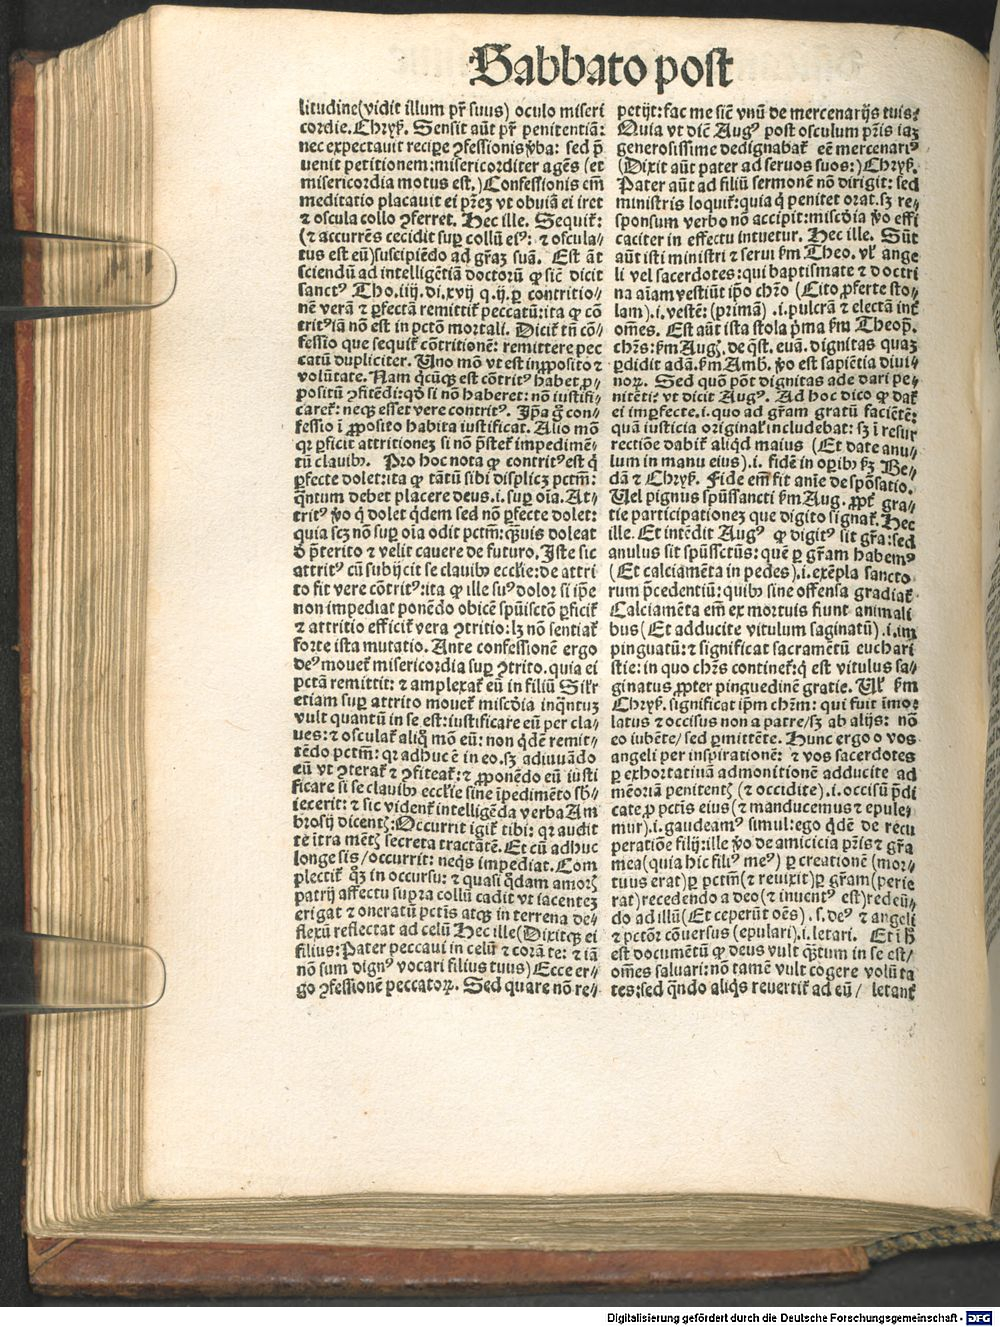 Sabbato post
litudine(vidit illum pr̃ suus) oculo miseri
cordie. Chrys̃. Sensit aũt pr̃ penitentiã:
nec expectauit recipe ꝯfessionis ṽba: sed p̃
uenit petitionem:misericorditer agẽs (et
misericordia motus est.) Confessionis em̃
meditatio placauit ei pr̃eȝ vt obuiã ei iret
⁊ oscula collo ꝯferret. Hec ille. Sequit̃:
(⁊ accurrẽs cecidit suꝑ collũ eiꝰ: ⁊ oscula-
tus est eũ)suscipiẽdo ad gr̃aȝ suã. Est ãt
sciendũ ad intelligẽtiã doctorũ ꝙ sic̃ dicit
sanctꝰ Tho.iiij.di.xvij q.ij.ꝑ contritio-
nẽ verã ⁊ ꝑfectã remittit̃ peccatũ:ita ꝙ cõ
tritꝰ iã nõ est in pctõ mortali. Dicit̃ tñ cõ-
fessio que sequit̃ cõtritionẽ: remittere pec
catũ dupliciter. Uno mõ vt est in ꝓposito ⁊
volũtate. Nam q̃cũqȝ est cõtritꝰ habet ꝓ-
positũ ꝯfitẽdi:qd̃ si nõ haberet: nõ iustifi-
caret̃: neqȝ esset vere contritꝰ. Ip̃a g̃ con-
fessio ĩ ꝓposito habita iustificat. Alio mõ
qꝛ ꝑficit attritioneȝ si nõ p̃stet̃ impedimẽ-
tũ clauibꝰ. Pro hoc nota ꝙ contritꝰ est q̃
ꝑfecte dolet:ita ꝙ tãtũ sibi displicȝ pctm̃:
q̃ntum debet placere deus.i.suꝑ oĩa. At-
tritꝰ ṽo q̃ dolet q̃dem sed nõ ꝑfecte dolet:
quia scȝ nõ suꝑ oĩa odit pctm̃:q̃uis doleat
d̃ p̃terito ⁊ velit cauere de futuro. Iste sic
attritꝰ cũ subijcit se clauibꝰ eccl̃ie:de attri
to fit vere cõtritꝰ:ita ꝙ ille suꝰ dolor si ip̃e
non impediat ponẽdo obicẽ sp̃uisctõ ꝑficit̃
⁊ attritio efficit̃ vera ꝯtritio:lȝ nõ sentiat̃
forte ista mutatio. Ante confessionẽ ergo
deꝰ mouet̃ misericordia suꝑ ꝯtrito.quia ei
pctã remittit: ⁊ amplexat̃ eũ in filiũ Sil̃r
etiam suꝑ attrito mouet̃ misc̃dia inq̃ntuȝ
vult quantũ in se est:iustificare eũ per cla-
ues:⁊ osculat̃ aliq̃ mõ eũ: non q̃dẽ remit-
tẽdo pctm̃: qꝛ adhuc ẽ in eo.sȝ adiuuãdo
eũ vt ꝯterat̃ ⁊ ꝯfiteat̃:⁊ ꝓponẽdo eũ iusti
ficare si se clauibꝰ eccl̃ie sine ĩpedimẽto sb̃-
iecerit: ⁊ sic vident̃ intelligẽda verba Am
brosij dicentȝ:Occurrit igit̃ tibi: qꝛ audit
te ĩtra mẽtȝ secreta tractãtẽ. Et cũ adhuc
longe sis/occurrit: neq̃s impediat. Com
plectit̃ q̃ȝ in occursu: ⁊ quasi q̃dam amorȝ
patrij affectu supra collũ cadit vt iacenteȝ
erigat ⁊ oneratũ pctis̃ atqȝ in terrena de-
flexũ reflectat ad celũ Hec ille(Dixitqȝ ei
filius:Pater peccaui in celũ ⁊ corã te: ⁊ iã
nõ sum dignꝰ vocari filius tuus) Ecce er-
go ꝯfessionẽ peccatoꝝ. Sed quare nõ re-
petijt:fac me sic̃ vnũ de mercenarijs tuis:
Quia vt dic̃ Augꝰ post osculum pr̃is iaȝ
generosissime dedignabat̃ eẽ mercenariꝰ
(Dixit aũt pater ad seruos suos:) Chrys̃.
Pater aũt ad filiũ sermonẽ nõ dirigit: sed
ministris loquit̃:quia q̃ penitet orat.sȝ re-
sponsum verbo nõ accipit:misc̃dia ṽo effi
caciter in effectu intuetur. Hec ille. Sũt
aũt isti ministri ⁊ serui s̃m Theo. vl̃ ange
li vel sacerdotes:qui baptismate ⁊ doctri
na aĩam vestiũt ip̃o chr̃o (Cito ꝓferte sto-
lam).i.vestẽ: (primã) .i.pulcrã ⁊ electã int̃
om̃es. Est aũt ista stola p̃ma s̃m Theop̃.
chr̃s: s̃m Augȝ.de q̃st.euã.dignitas quaȝ
ꝑdidit adã.s̃m Amb. ṽo est sapiẽtia diui-
noꝝ. Sed quõ põt dignitas ade dari pe-
nitẽti: vt dicit Augꝰ. Ad hoc dico ꝙ dat̃
ei imꝑfecte.i.quo ad gr̃am gratũ faciẽtẽ:
quã iusticia original̃ includebat: sȝ ĩ resur
rectiõe dabit̃ aliq̃d maius (Et date anu-
lum in manu eius).i. fidẽ in oꝑibꝰ s̃ȝ Be-
dã ⁊ Chrys̃. Fide em̃ fit anĩe despõsatio.
Uel pignus sp̃ussancti s̃m Aug. ꝓpt̃ gra-
tie participationeȝ que digito signat̃. Hec
ille. Et intẽdit Augꝰ ꝙ digitꝰ sit gr̃a:sed
anulus sit sp̃ussctũs: quẽ ꝑ gr̃am habemꝰ
(Et calciamẽta in pedes).i.exẽpla sancto
rum p̃cedentiũ: quibꝰ sine offensa gradiat̃
Calciamẽta em̃ ex mortuis fiunt animali
bus(Et adducite vitulum saginatũ).i.im
pinguatũ:⁊ significat sacramẽtũ euchari
stie:in quo chr̃s continet̃:q̃ est vitulus sa-
ginatus ꝓpter pinguedinẽ gratie. Ul̃ s̃m
Chrys̃.significat ip̃m chr̃m: qui fuit ĩmo:
latus ⁊ occisus non a patre/sȝ ab alijs: nõ
eo iubẽte/sed ꝑmittẽte. Hunc ergo o vos
angeli per inspirationẽ: ⁊ vos sacerdotes
ꝑ exhortatiuã admonitionẽ adducite ad
mẽoriã penitentȝ (⁊ occidite).i.occisũ p̃di
cate ꝓ pctis̃ eius(⁊ manducemus ⁊ epule-
mur).i.gaudeamꝰ simul:ego q̃dẽ de recu
peratiõe filij:ille ṽo de amicicia pr̃is ⁊ gr̃a
mea(quia hic filiꝰ meꝰ) ꝑ creationẽ (mor-
tuus erat)ꝑ pctm̃(⁊ reuixit)ꝑ gr̃am(perie
rat)recedendo a deo(⁊ inuentꝰ est)redeũ-
do ad illũ(Et ceperũt oẽs).s.deꝰ ⁊ angeli
⁊ pctõr cõuersus (epulari).i.letari. Et ĩ h̃
est documẽtũ ꝙ deus vult q̃ntum in se est/
oms̃ saluari:nõ tamẽ vult cogere volũta
tes:sed q̃ndo aliq̃s reuertit̃ ad eũ/ letant̃
Digitalisierung gefördert durch die Deutsche Forschungsgemeinschaft - DFG